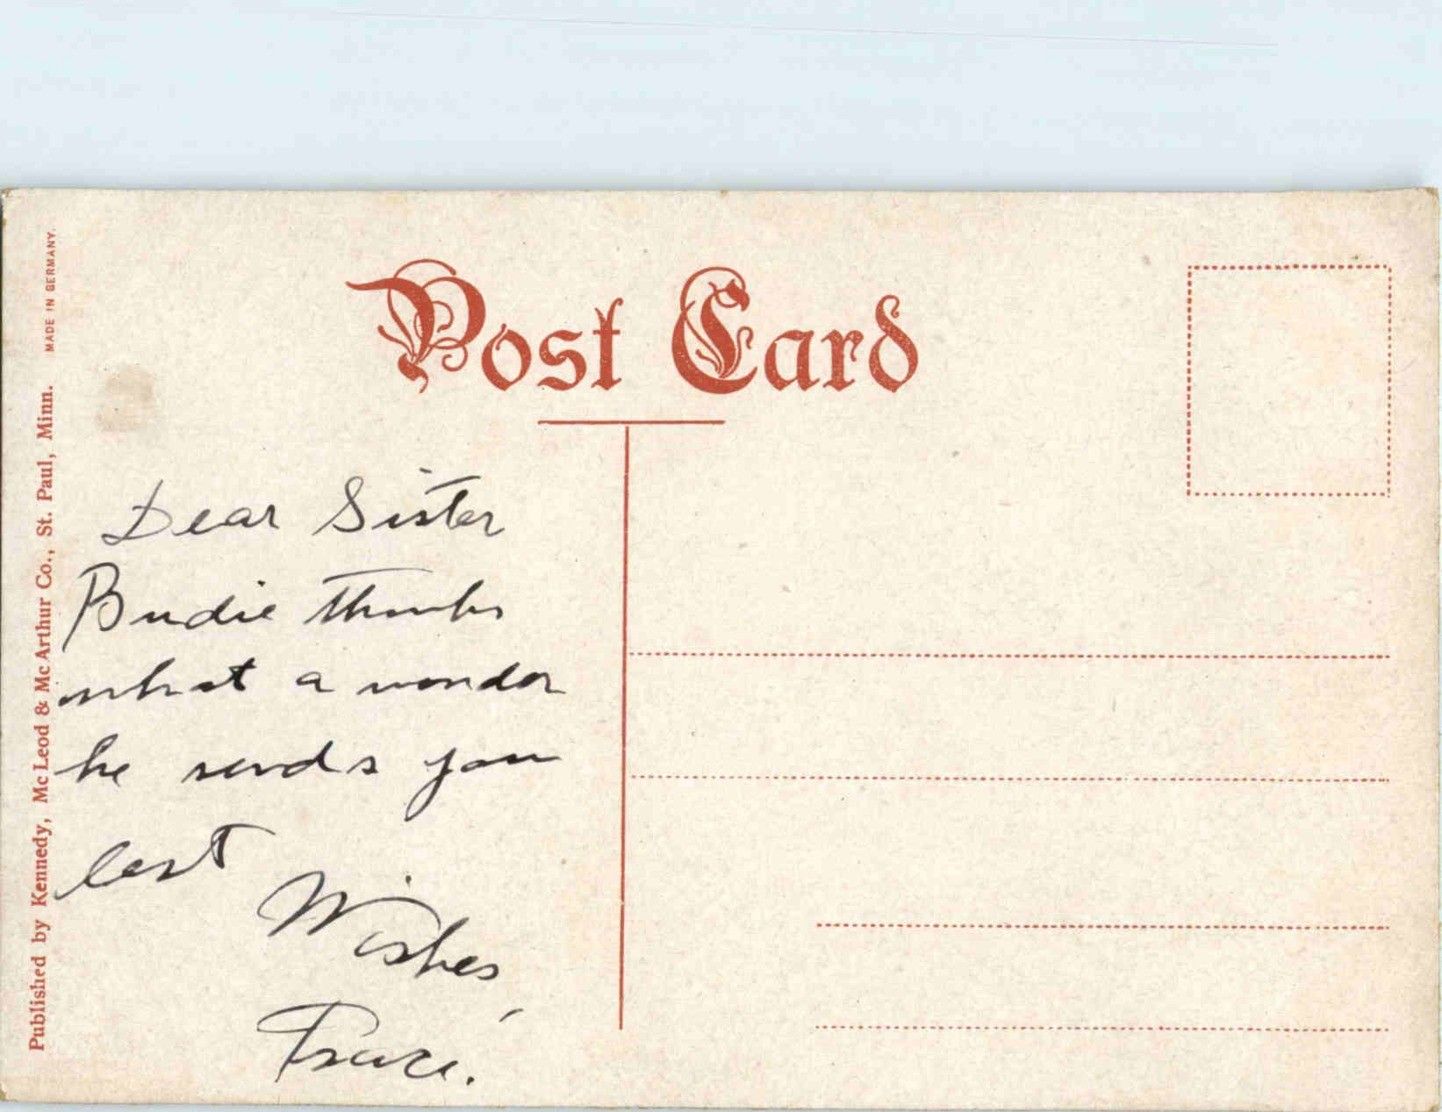 Post Card
MADE IN GERMANY.
Published by Kennedy, McLeod & McArthur Co., St. Paul, Minn.
Dear Sister
Budie thanks
what a wonder
he sends you
best
Wishes,